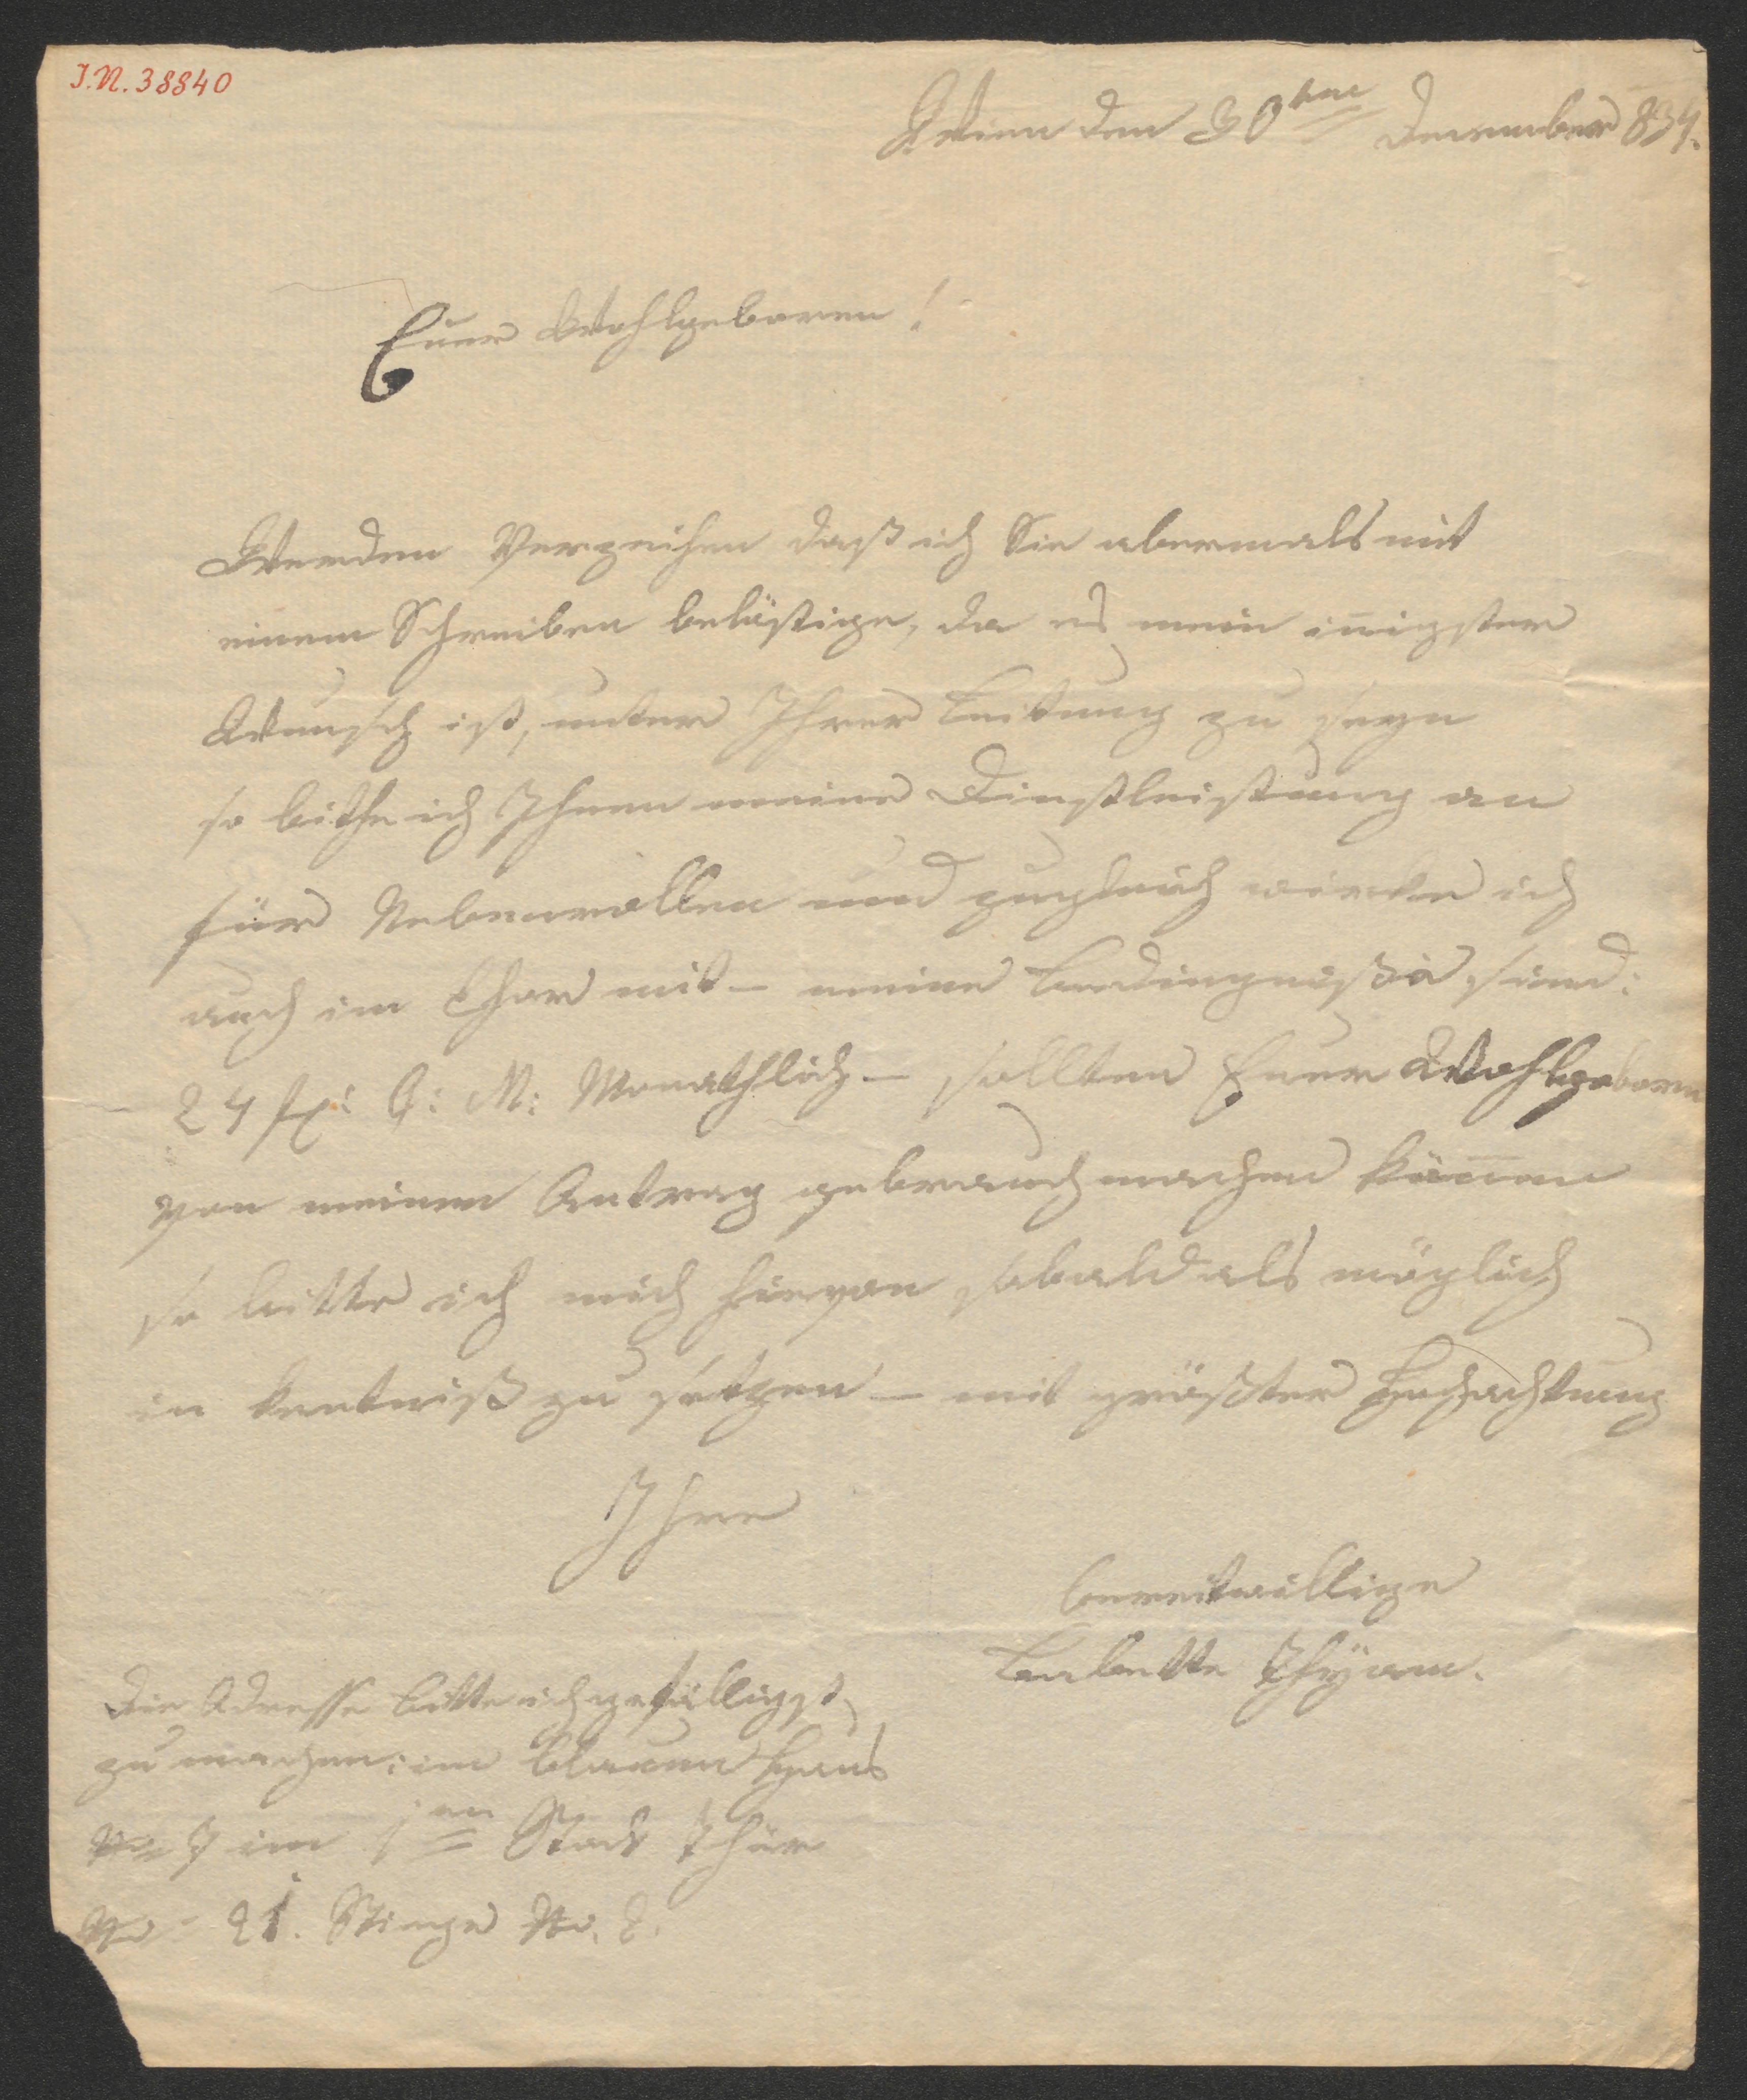 J.N. 38840
Wien den 30ten December 834.
Euer Wohlgeboren!
Werden Verzeihen daß ich Sie abermals mit
einem Schreiben belästige, da es mein in̅igster
Wunsch ist, unter Ihrer Leitung zu seyn
so biethe ich Ihnen meine Dienstleistung an
für Nebenrollen und zugleich wircke ich
auch im Chor mit – meine Bedingniße sind:
24 fl: C: M: Monathlich – sollten Euer Wohlgeboren
von meinen Antrag gebrauch machen kön̅en
so bitte ich mich hievon sobald als möglich
in kentniß zu setzen – mit größter Hochachtung
Ihre
bereitwillige
Babette Thÿam.
Die Adresse bitte ich gefälligst
zu machen: im blauen Haus
No 7 im 1ten Stock Thür
No 21. Stiege No. 2.